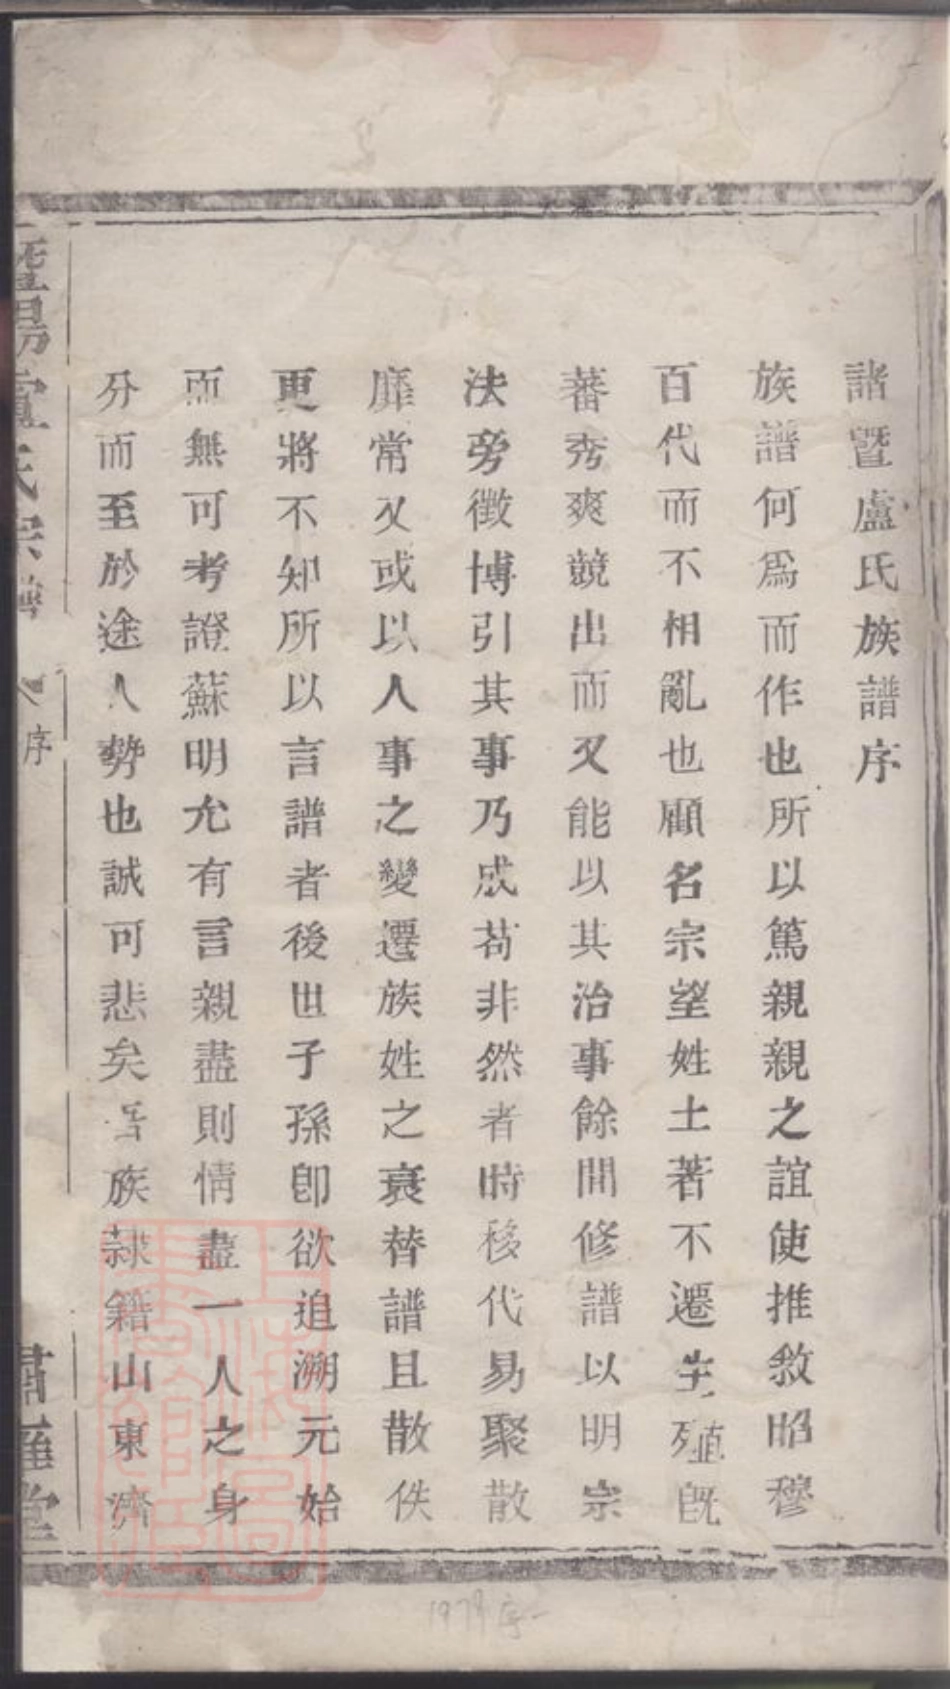 諸暨盧氏族譜序
族譜何爲而作也所以篤親親之誼使推敘昭穆
百代而不相亂也顧名宗望姓土著不遷生殖既
蕃秀爽競出而又能以其治事餘間修譜以明宗
法旁徵博引其事乃成苟非然者時移代易聚散
靡常又或以人事之變遷族姓之衰替譜且散佚
更將不知所以言譜者後世子孫卽欲追溯元始
而無可考證蘇明允有言親盡則情盡一人之身
分而至於途人勢也誠可悲矣吾族隸籍山東濟
暨陽盧氏宗譜
序
肅雝堂
1979序一